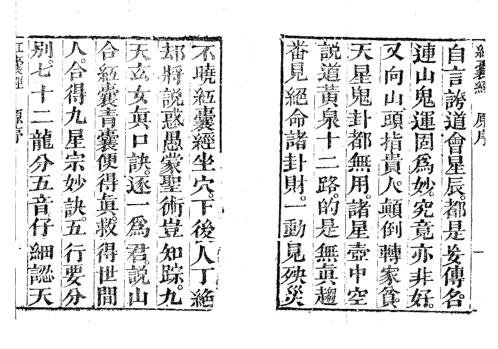 紅囊經 原序
自言誇道會星辰。都是妄傳名。
連山鬼運固爲妙。究竟亦非好。
又向山頭指貴人。顚倒轉家貧。
天星鬼卦都無用。諸星壺中空
說道黃泉十二路。的是無眞趨
畨見絕命諸卦財。一動見殃災
不曉紅囊經坐穴。下後人丁絕
却將說惑愚蒙聖術豈知踪。九
天玄女眞口訣。逐一爲君說山
合紅囊青囊便得眞。救得世間
人。合得九星宗妙訣。五行要分
別。七十二龍分五音仔細認天
紅囊經 原序